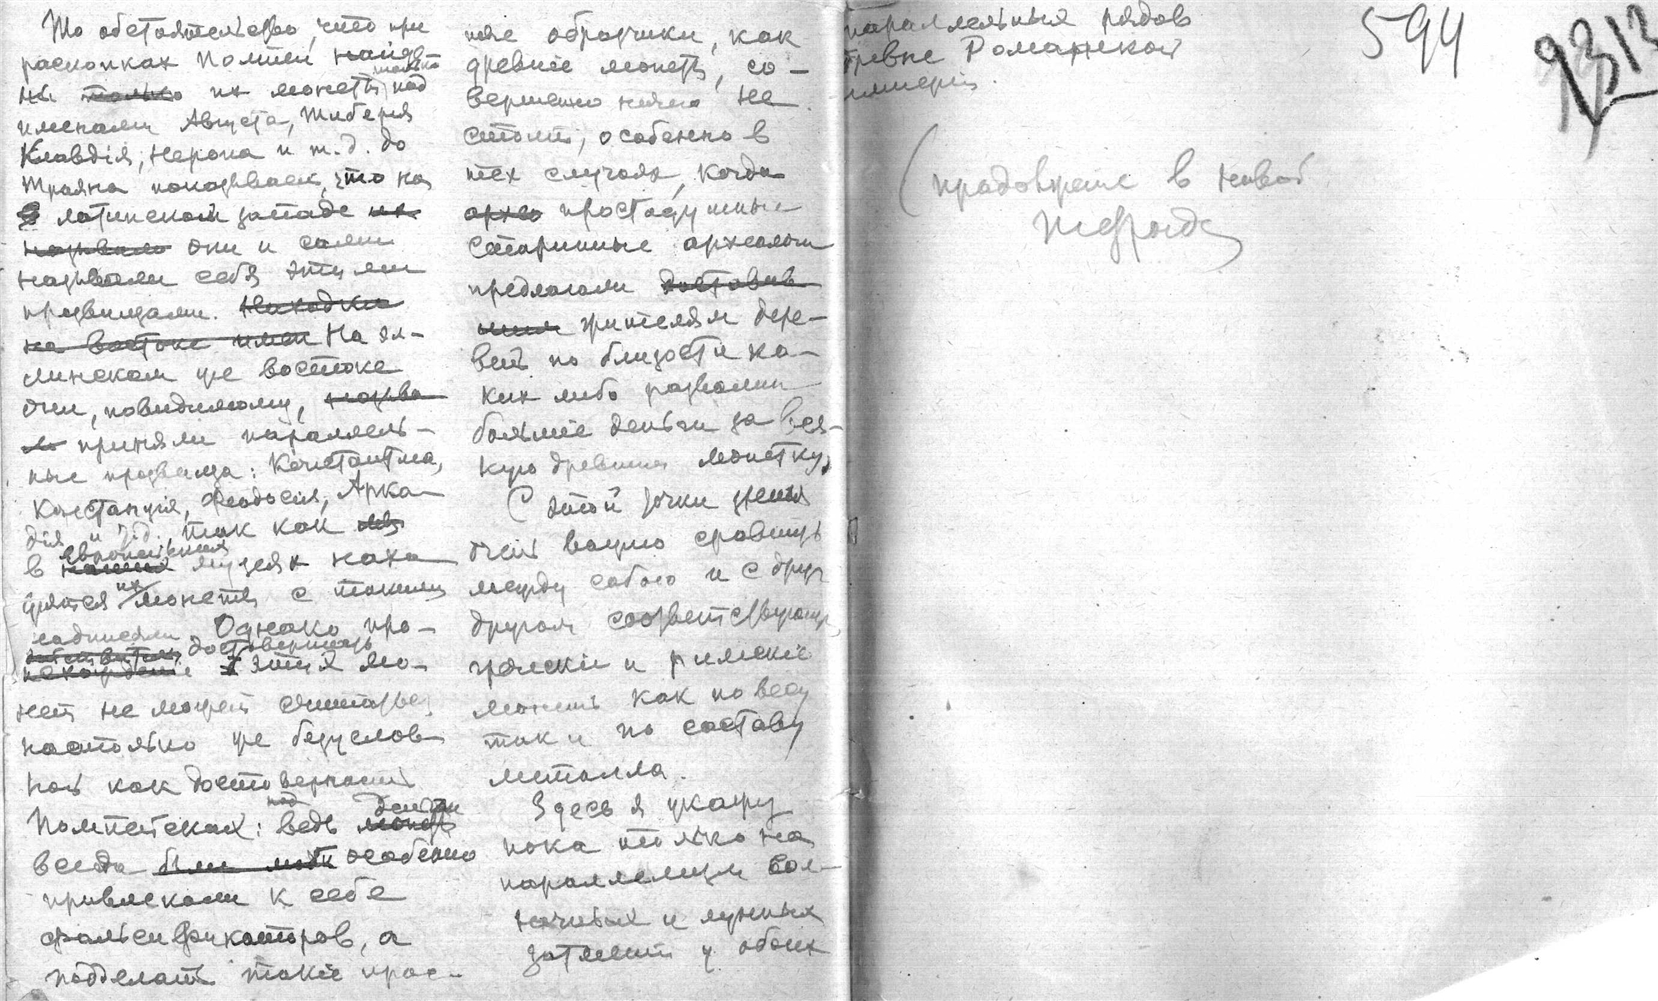 То обстоятельство, что при
раскопках Помпеи найде
ны только их монеты под
только
именами Августа, Тиберия
Клавдія, Нерона и т.д. до
Траяна показывает, что на
латинском западе их
называло они и сами
называли себя этими
прозвищами. Находки
на востоке имен На эл-
линском же востоке
они, повидимому, назва
ли приняли параллель-
ные прозвища: Константина,
Констанція, Феодосія, Арка-
дія и т.д. так как
европейских
в наших музеях нахо
дятся их монеты с такими
надписями. Однако про-
достоверность
этих мо-
нет не может считаться
настолько же безуслов-
ной как достоверность
Помпейских: ведь под
деньги
всегда были особенно
привлекали к себе
фальсификаторов, а
подделать такіе прос-
тые образчики, как
древніе монеты, со-
вершенно ничего не
стоит, особенно в
тех случаях, когда
архео простодушные
старинные археологи
предлагали доставив
шим жителям дере-
вень по близости ка-
ких либо развалин
большіе деньги за вся-
кую древнюю монетку.
С этой точки зренія
очень важно сравнить
между собою и с друг
другом соответствующія
греческіе и римскіе
монеты как по весу
так и по составу
металла.
Здесь я укажу
пока только на
параллелизм сол-
нечных и лунных
затмений у обоих
параллельных рядов
древне Романской
имперіи
594
9313
(продолжение в новой
тетради)